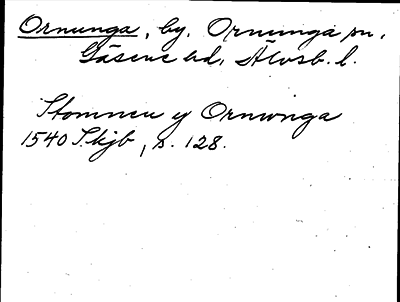 Ornunga, by. Ornunga sn,
Gäsene hd, Älvsb. l.
Stomnen y Ornwnga
1540 T.Skjb, s. 128.